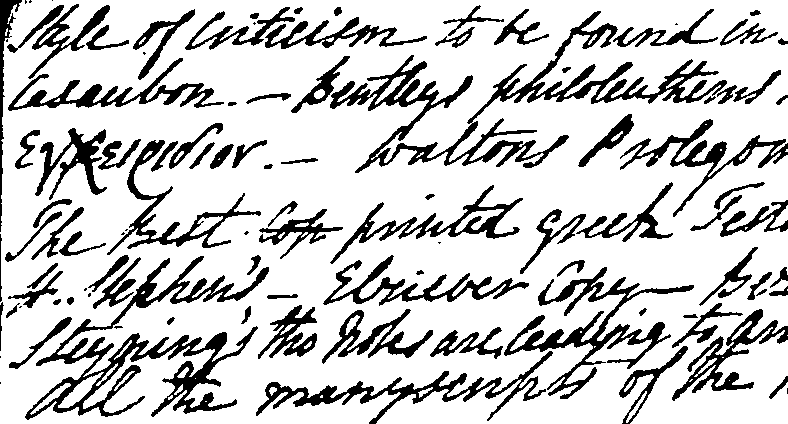 Style of Criticism to be found in
Casaubon. — Bentleys philoleutherus
Εγχειριδιον. — Waltons Prolegom
The Best Cop printed Greek Test
H. Stephen's — Elziever Copy — Bez
tho Notes are leading to
All the manyscripts of the